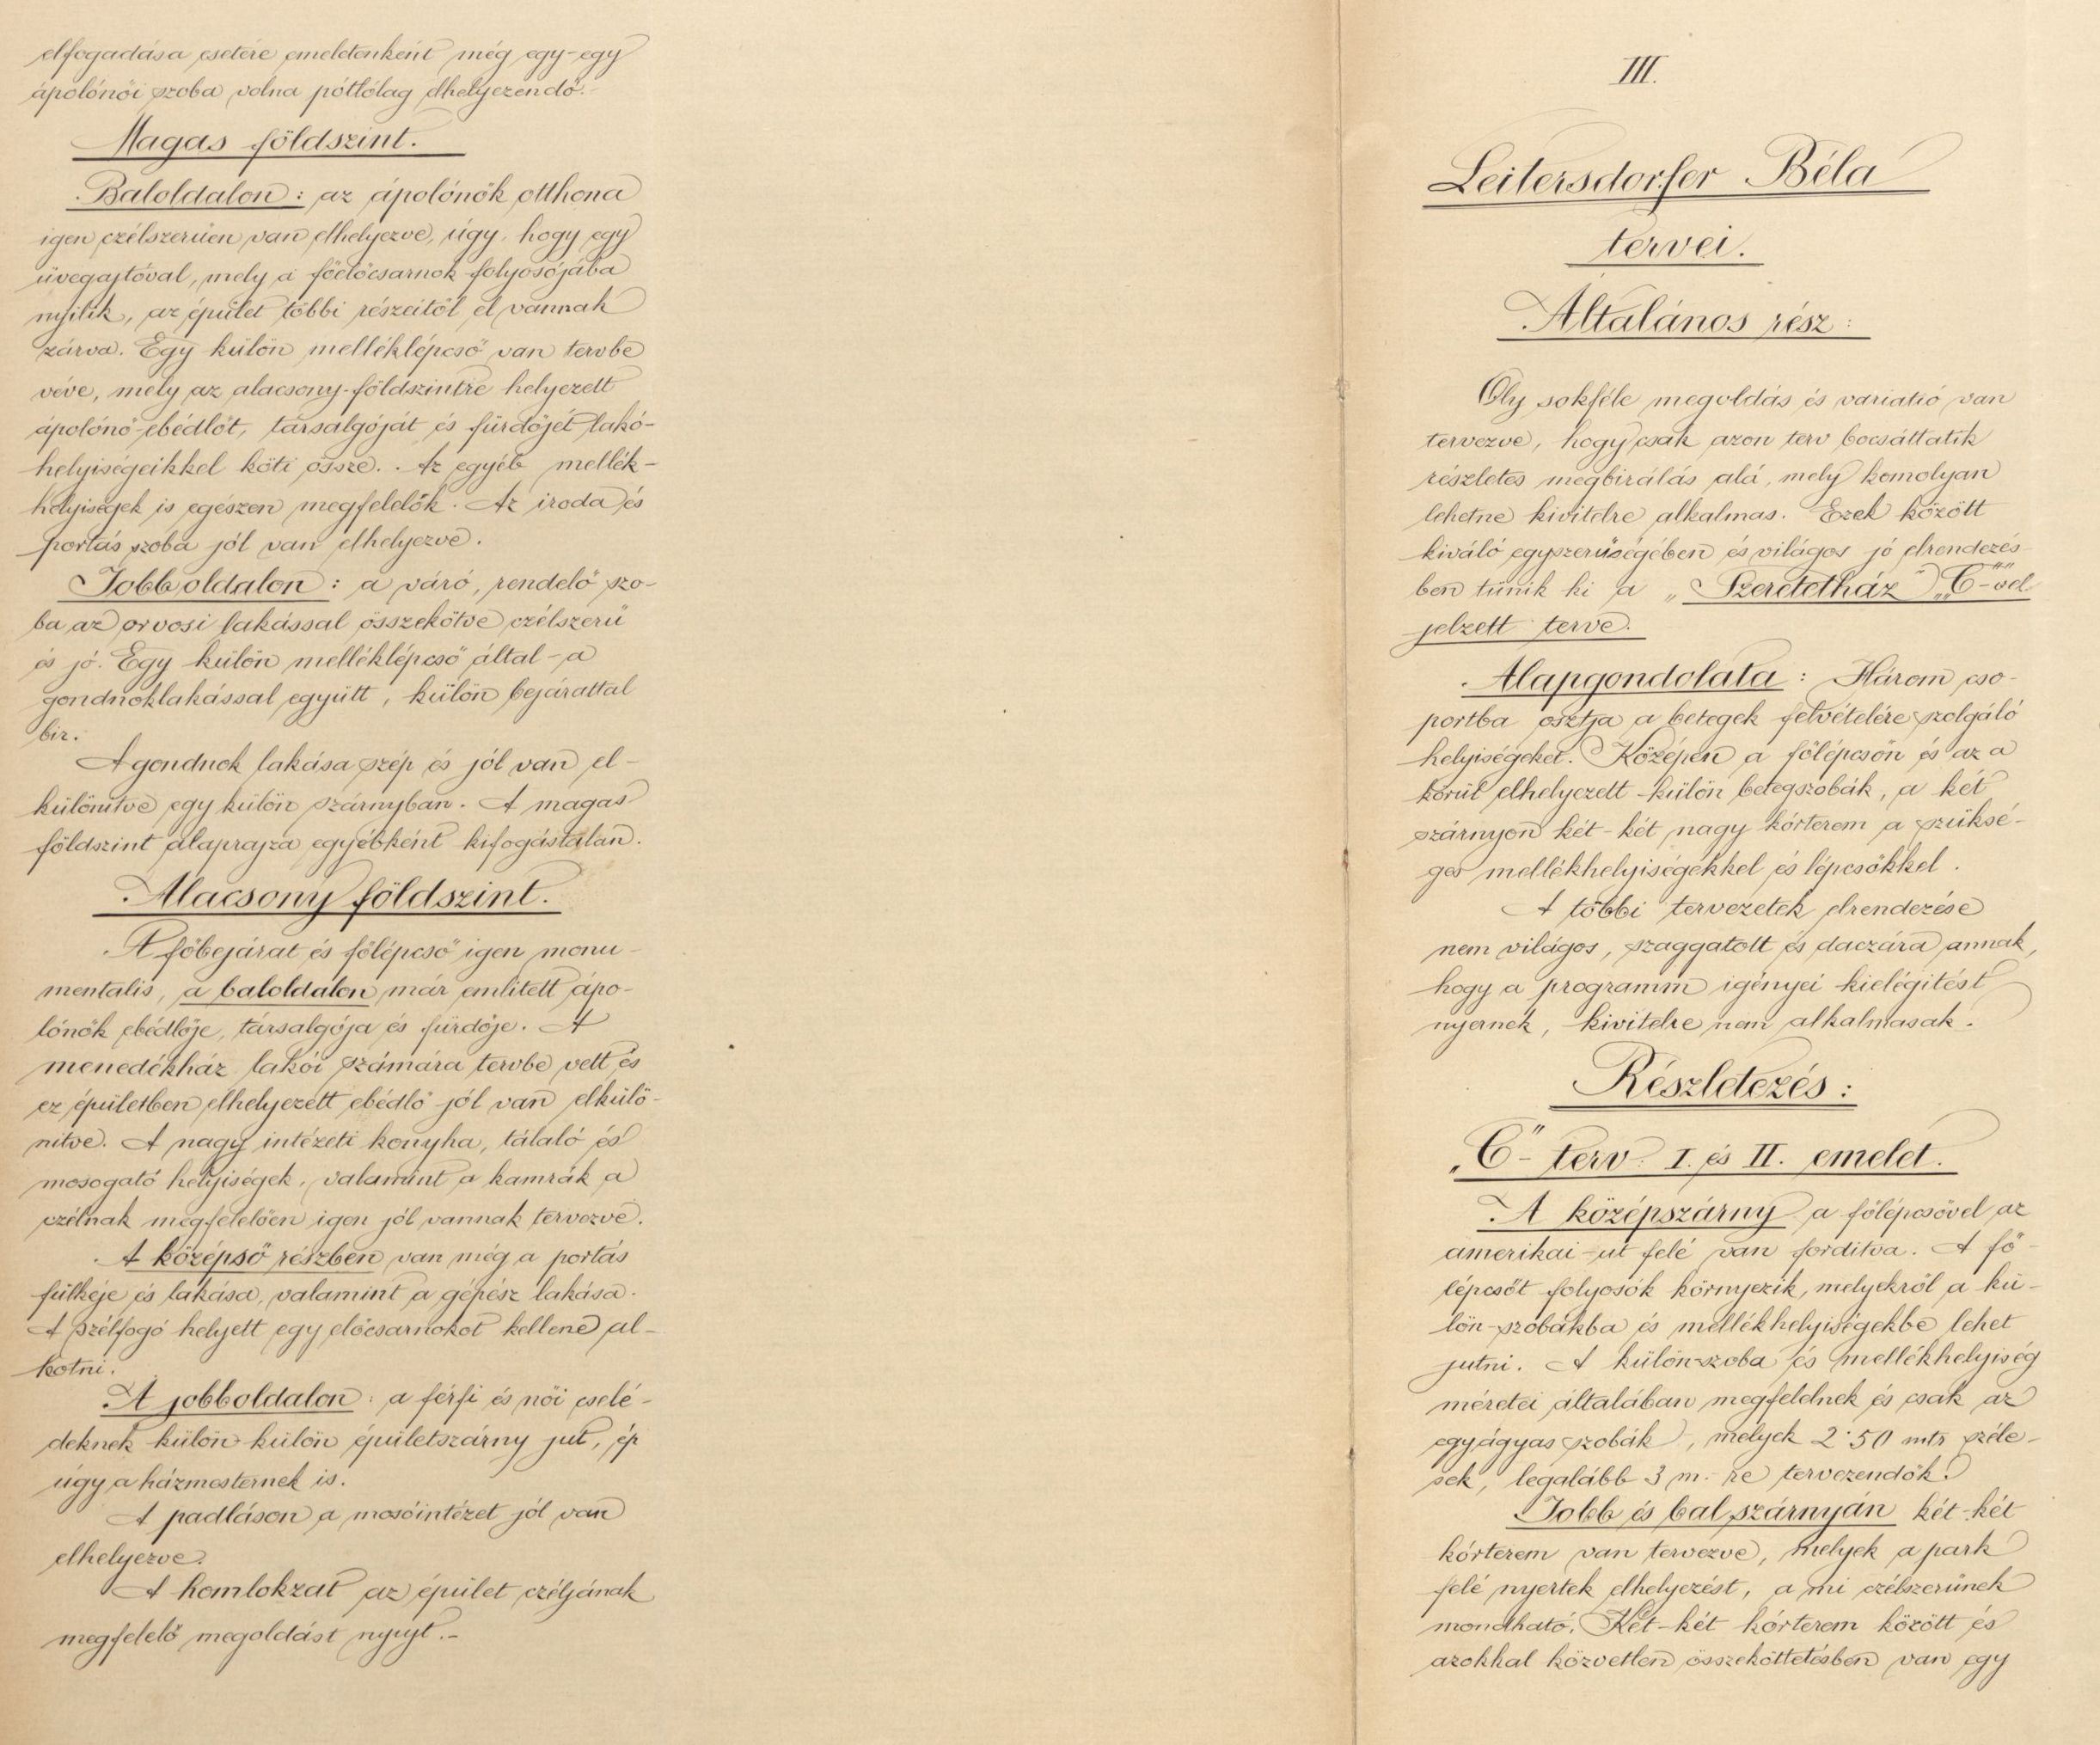 elfogadása esetére emeletenként még egy-egy
ápolónői szoba volna pótlólag elhelyezendő.-
Magas földszint.
Baloldalon: az ápolónők otthona
igen czélszerűen van elhelyezve, úgy, hogy egy
üvegajtóval, mely a főelőcsarnok folyosójába
nyílik, az épület többi részeitől el vannak
zárva. Egy külön melléklépcső van tervbe
véve, mely az alacsony-földszintre helyezett
ápolónő-ebédlőt, társalgóját és fürdőjét lakó-
helyiségeikkel köti össze. Az egyéb mellék-
helyiségek is egészen megfelelők. Az iroda és
portás szoba jól van elhelyezve.
Jobboldalon: a váró, rendelő szo-
ba az orvosi lakással összekötve czélszerű
és jó. Egy külön melléklépcső által - a
gondnoklakással együtt, külön bejárattal
bir.
A gondnok lakása szép és jól van el-
különitve egy külön szárnyban. A magas
földszint alaprajza egyébként kifogástalan.
Alacsony földszint.
A főbejárat és főlépcső igen monu-
mentalis, a baloldalon már emlitett ápo-
lónők ebédlője, társalgója és fürdője. A
menedékház lakói számára tervbe vett és
ez épületben elhelyezett ebédlő jól van elkülö-
nitve. A nagy intézeti konyha, tálaló és
mosogató helyiségek, valamint a kamrák a
czélnak megfelelően igen jól vannak tervezve.
A középső részben van még a portás
fülkéje és lakása, valamint a gépész lakása.
A szélfogó helyett egy előcsarnokot kellene al-
kotni.
A jobboldalon: a férfi és női cselé-
deknek külön-külön épületszárny jut, ép
úgy a házmesternek is.
A padláson a mosóintézet jól van
elhelyezve.
A homlokzat az épület czéljának
megfelelő megoldást nyujt.-
III.
Leitersdorfer Béla
tervei.
Általános rész:
Oly sokféle megoldás és variatió van
tervezve, hogy csak azon terv bocsáttatik
részletes megbirálás alá, mely komolyan
lehetne kivitelre alkalmas. Ezek között
kiváló egyszerűségében és világos jó elrendezés-
ben tűnik ki a „Szeretetház" „C"-vel
jelzett terve.
Alapgondolata: Három cso-
portba osztja a betegek felvételére szolgáló
helyiségeket. Középen a főlépcsőn és az a
körül elhelyezett külön betegszobák, a két
szárnyon két-két nagy kórterem a szüksé-
ges mellékhelyiségekkel és lépcsőkkel.
A többi tervezetek elrendezése
nem világos, szaggatott és daczára annak,
hogy a programm igényei kielégitést
nyernek, kivitelre nem alkalmasak.
Részletezés:
„C"- terv I. és II. emelet.
A középszárny a főlépcsővel az
amerikai-út felé van forditva. A fő-
lépcsőt folyosók környezik, melyekről a kü-
lön-szobákba és mellékhelyiségekbe lehet
jutni. A külön-szoba és mellékhelyiség
méretei általában megfelelnek és csak az
egyágyas szobák, melyek 2·50 mtr széle-
sek, legalább 3 m.-re tervezendők.
Jobb és bal szárnyán két-két
kórterem van tervezve, melyek a park
felé nyertek elhelyezést, a mi czélszerűnek
mondható. Két-két kórterem között és
azokkal közvetlen összeköttetésben van egy